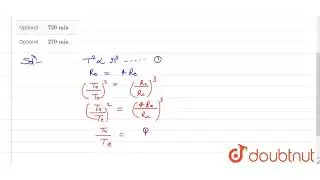 Option3 720 min
Option4 270 min
Sol- T² α R³ ..... ①
Re = 4 Re
(To/Te)² = (Ro/Re)³
(To/Te)² = (4Re/Re)³
To/Te =
doubtnut